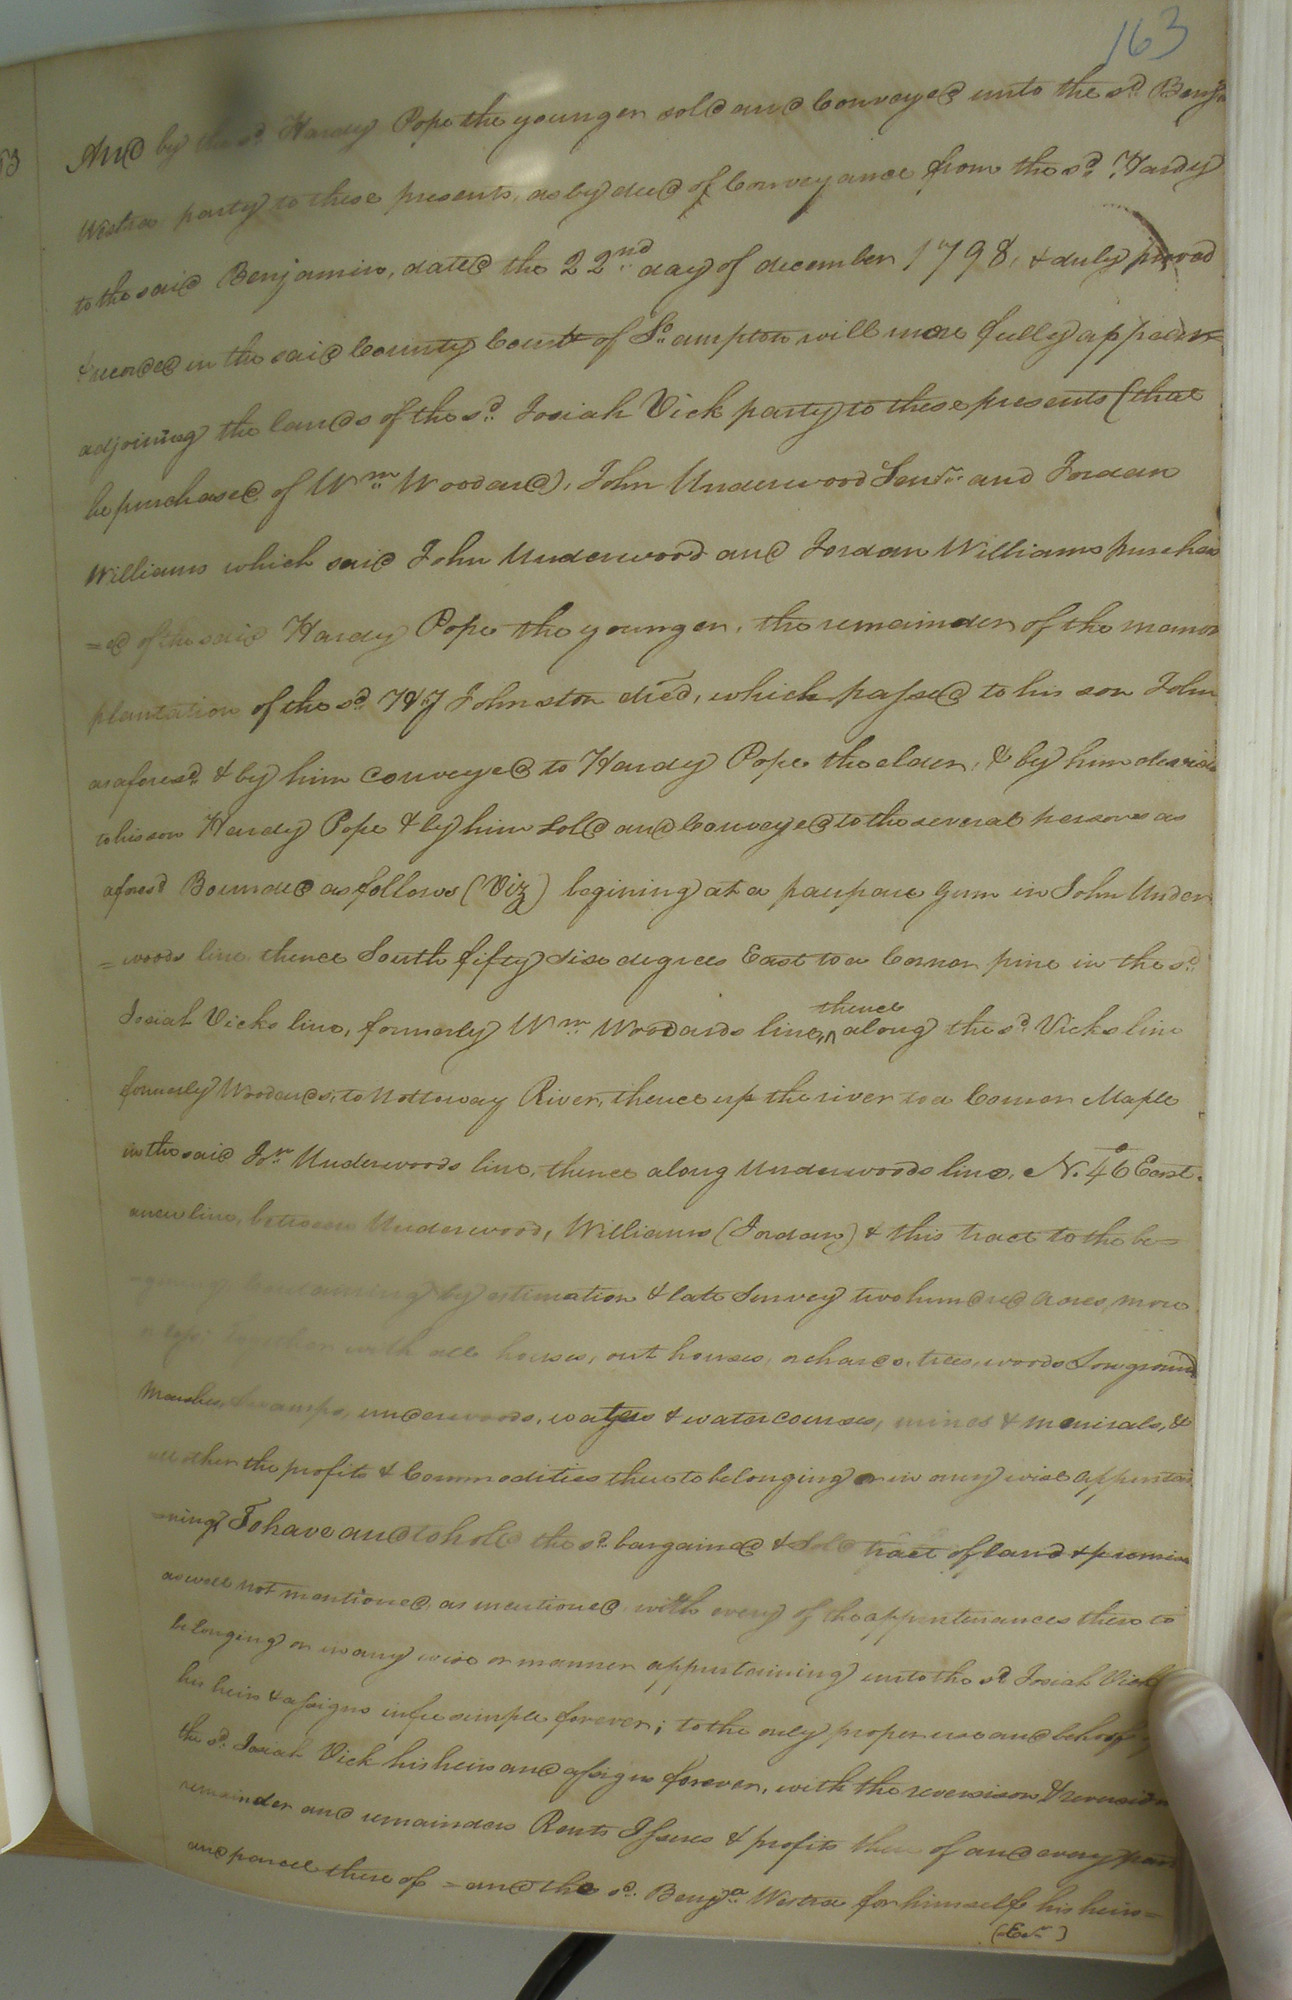 163
And by the sd. Hardy Pope the younger sold and Conveyed unto the sd. Benja
Westra party to these presents, as by deed of Conveyance from the sd. Hardy
to the said Benjamin, dated the 22nd day of december 1798, & duly proved
& recorded in the said County Court of So.ampton will more fully appear
adjoining the lands of the sd. Josiah Vick party to these presents (that
he purchased of Wm. Woodard), John Underwood Senr. and Jordan
Williams which said John Underwood and Jordan Williams purchas
=ed of the said Hardy Pope the younger, the remainder of the manor
plantation of the sd. Johnston died, which passed to his son John
as aforesd. & by him conveyed to Hardy Pope the elder, & by him devised
to his son Hardy Pope & by him Sold and Conveyed to the several persons as
aforesd Bounded as follows (Viz) begining at a gum in John Under
=woods line thence South fifty six degrees East to a Cornor pine in the sd.
Josiah Vicks line, formerly Wm. Woodards line, thence along the sd. Vicks line
formerly Woodards, to Nottoway River, thence up the river to a Cornor Maple
in the said Jn. Underwoods line, thence along Underwoods line, N. 46° East
a new line, between Underwood, Williams (Jordan) & this tract to the be=
=gining Containing by estimation & late Survey two hundred Acres, more
or less: Together with all houses, out houses, orchards, trees, woods Low grounds
Marshes, Swamps, underwoods, waters & watercourses, mines & menirals, &
all other the profits & Commodities thereto belonging or in any wise appertai
=ning, To have and to hold the sd. bargained & Sold tract of land & premises
as well not mentioned, as mentioned with every of the appurtenances there to
belonging or in any wise or manner appurtaining unto the sd. Josiah Vick
his heirs & assigns in fee simple forever; to the only proper use and behoof
the sd. Josiah Vick his heirs and assigns forever, with the reversion & reversions
remainder and remainders Rents Issues & profits there of and every part
and parcel there of = and the sd. Benja. Westra for himself his heirs=
(Exr.)